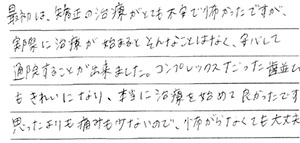 最初は、矯正の治療がとても不安で怖かったですが、
実際に治療が始まるとそんなことはなく、安心して
通院することが出来ました。コンプレックスだった歯並び
もきれいになり、本当に治療を始めて良かったです
思ったよりも痛みも少ないので、怖がらなくても大丈夫